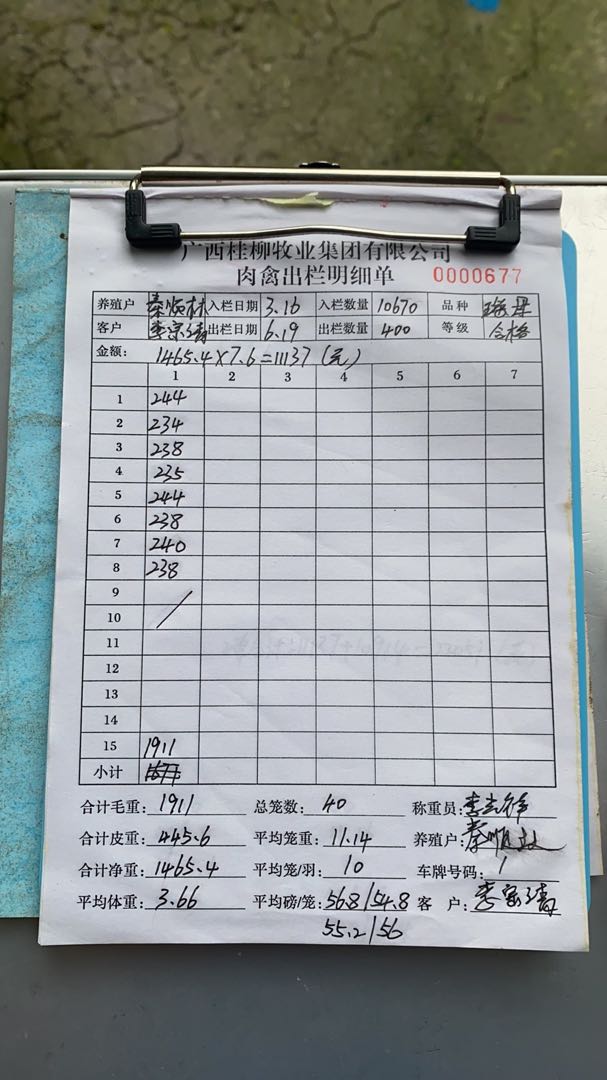 广西桂柳牧业集团有限公司
肉禽出栏明细单 0000677
养殖户 秦顺林 入栏日期 3.16 入栏数量 10670 品种
客户 李宗靖 出栏日期 6.19 出栏数量 400 等级 合格
金额: 1465.4×7.6=11137(元)
1 2 3 4 5 6 7
1 244
2 234
3 238
4 235
5 244
6 238
7 240
8 238
9
10 /
11
12
13
14
15 1911
小计
合计毛重: 1911 总笼数: 40 称重员:
合计皮重: 445.6 平均笼重: 11.14 养殖户: 秦顺林
合计净重: 1465.4 平均笼/羽: 10 车牌号码: 1
平均体重: 3.66 平均磅/笼: 56.8/54.8 客 户: 李宗靖
55.2/56